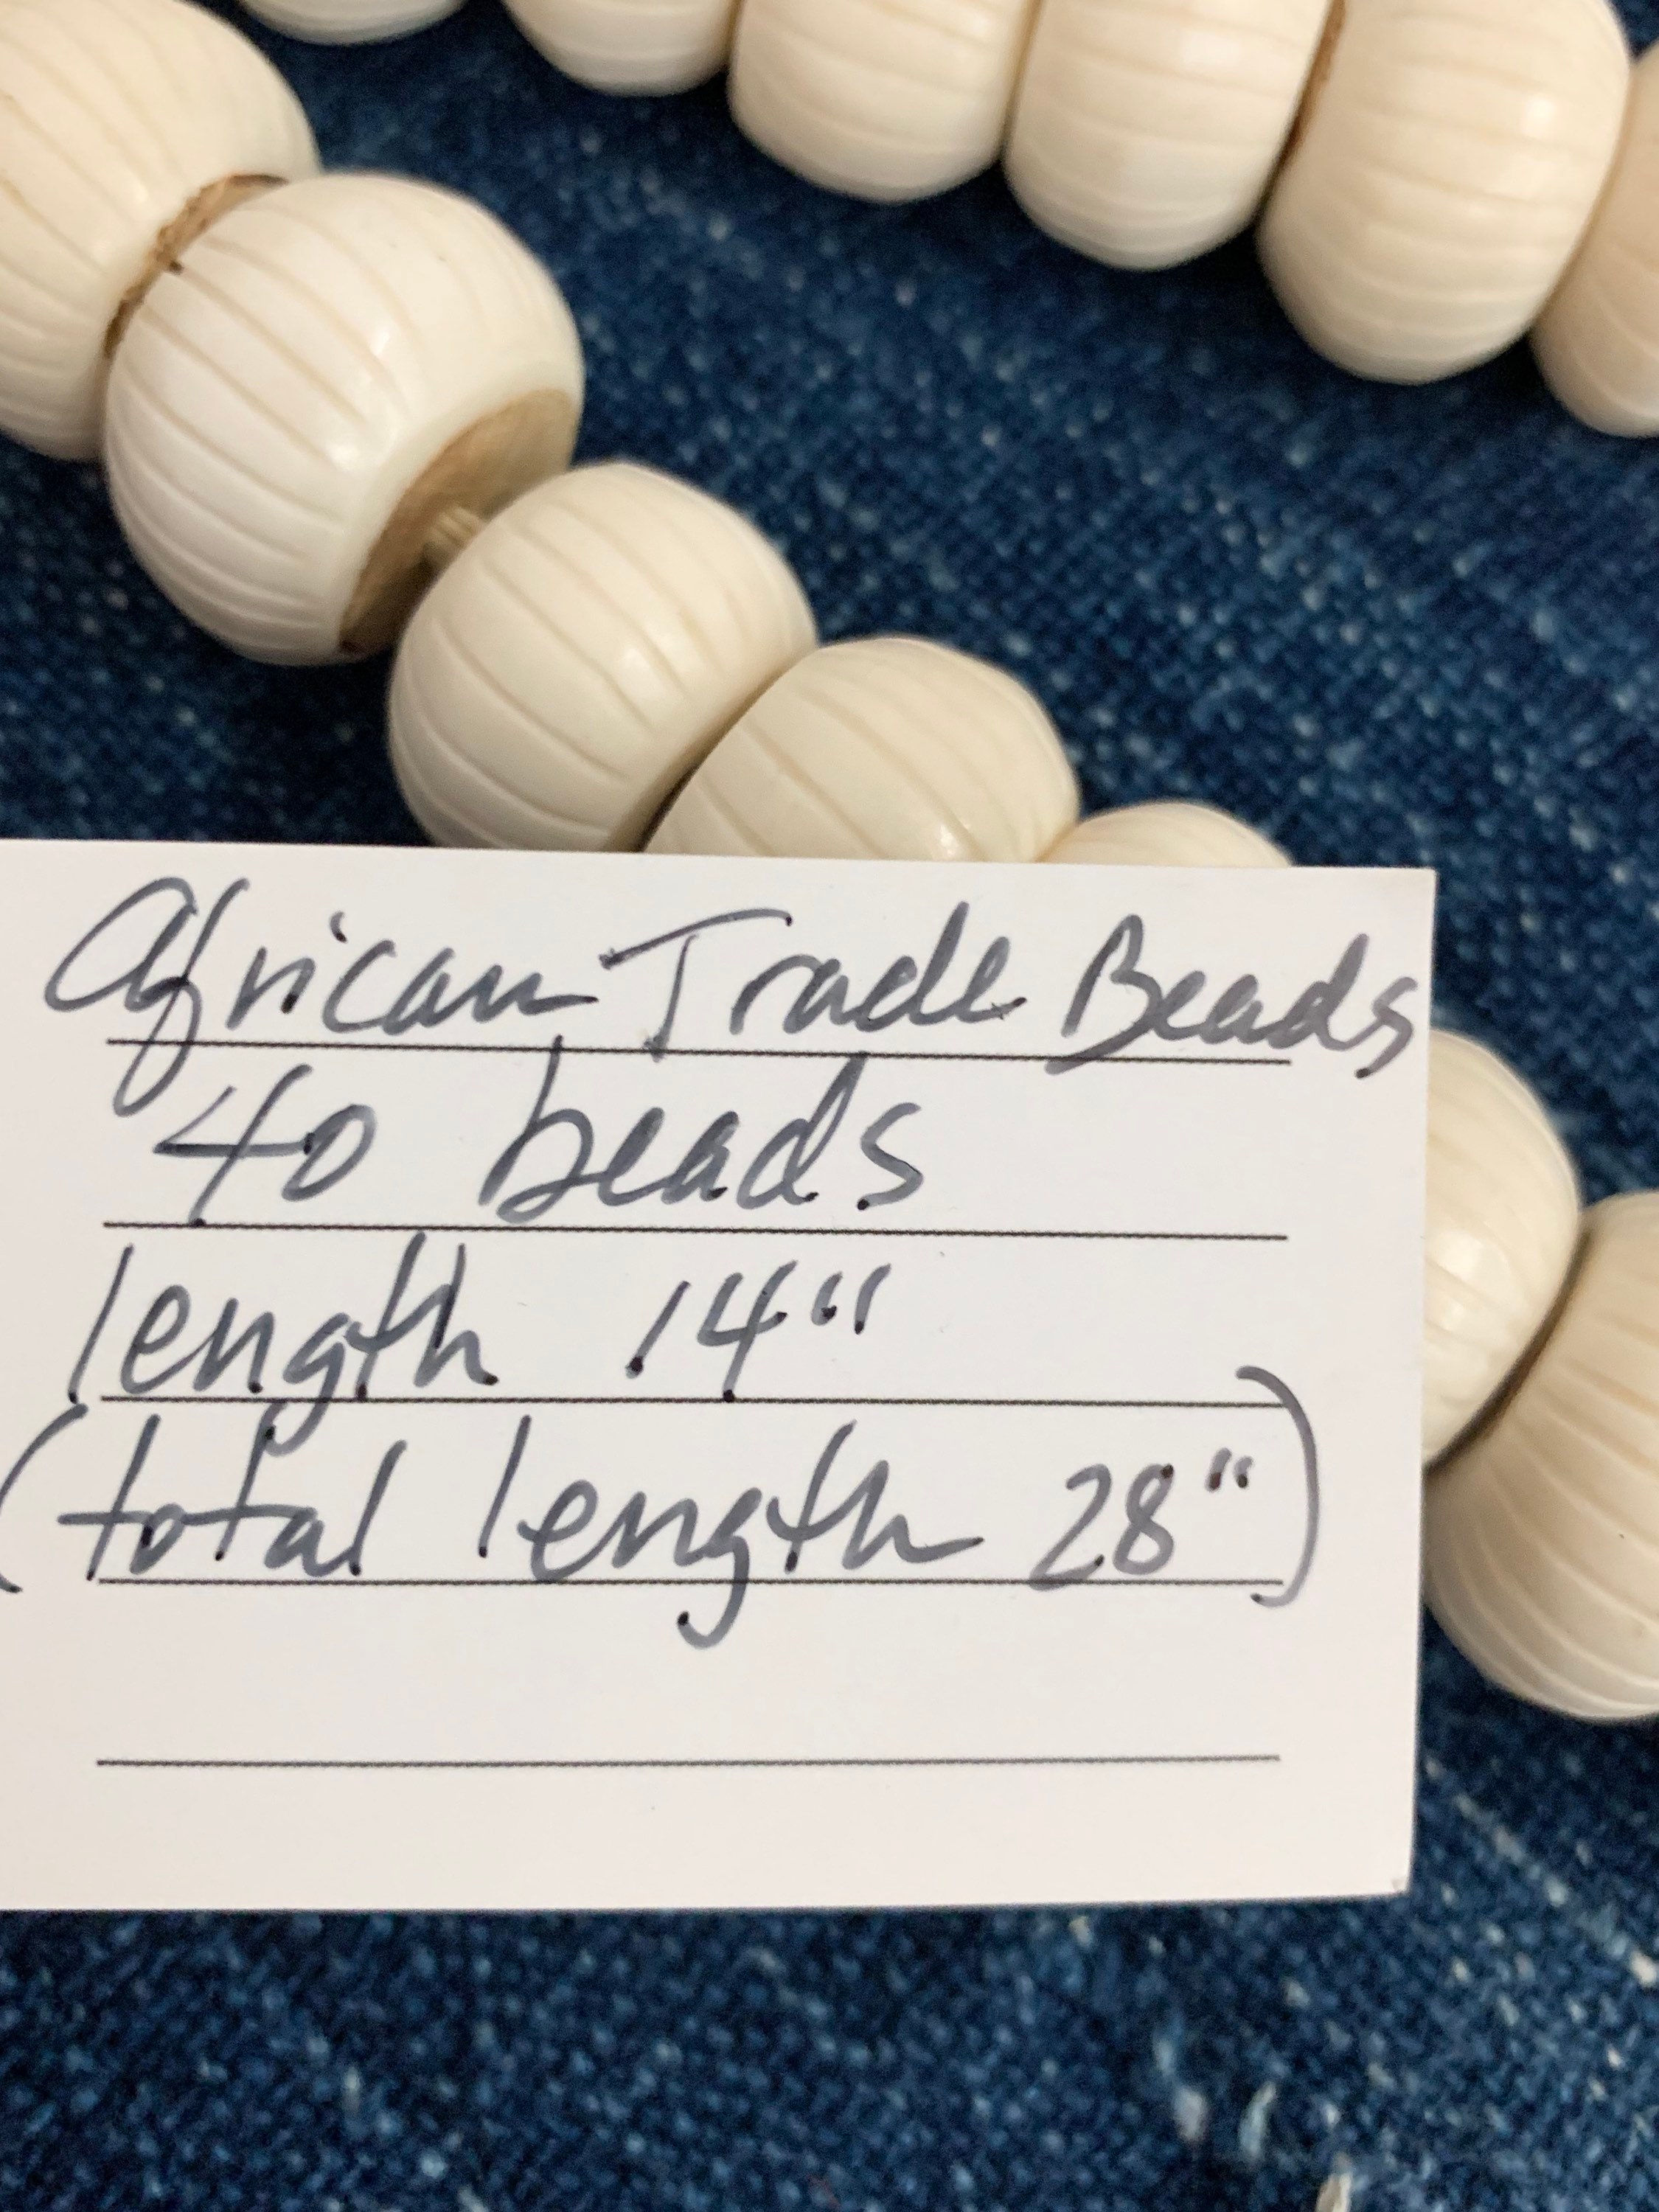 African Trade Beads
40 beads
length 14"
(total length 28")